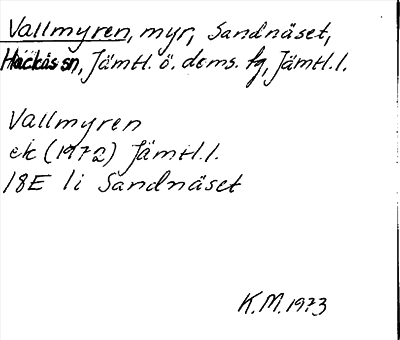 Vallmyren, myr, Sandnäset,
Hackås sn, Jämtl. ö. doms. fg, Jämtl. l.
Vallmyren
ek (1972) Jämtl. l.
18E 1i Sandnäset
K.M. 1973